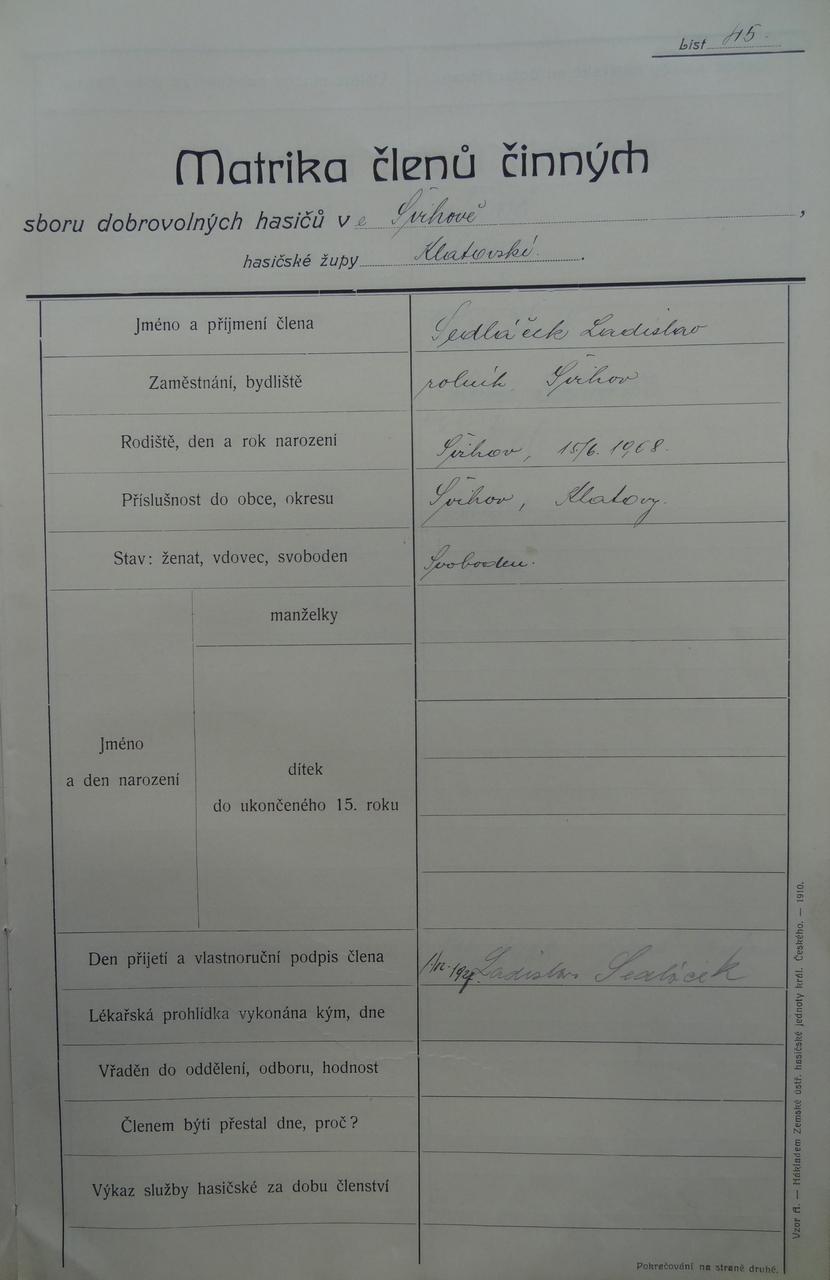 List 45.
Matrika členů činných
sboru dobrovolných hasičů v e Švihově,
hasičské župy Klatovské.
Jméno a příjmení člena Sedláček Ladislav
Zaměstnání, bydliště rolník Švihov
Rodiště, den a rok narození Švihov, 15/6. 1908.
Příslušnost do obce, okresu Švihov, Klatovy.
Stav: ženat, vdovec, svoboden Svoboden.
manželky
Jméno
a den narození
dítek
do ukončeného 15. roku
Den přijetí a vlastnoruční podpis člena Ladislav Sedláček
Lékařská prohlídka vykonána kým, dne
Vřaděn do oddělení, odboru, hodnost
Členem býti přestal dne, proč?
Výkaz služby hasičské za dobu členství
Vzor A. — Nákladem Zemské ústř. hasičské jednoty král. Českého. — 1910.
Pokračování na straně druhé.